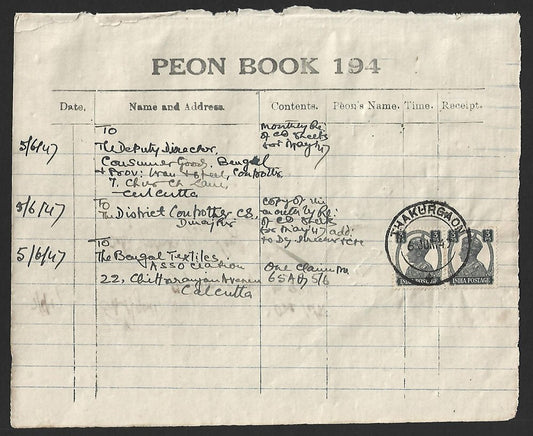 PEON BOOK 194
Date. Name and Address. Contents. Peon's Name. Time. Receipt.
5/6/47 To Monthly Re:
The Deputy Director, of CD Sheets
Consumer Goods, Bengal for May 47
& Prov: Iron & Steel, Controller
7, Ch Lane
Calcutta
5/6/47 To Copy of
The District Controller CS, monthly Re:
Dinajpur of CD
for May 47 add:
to Dy
5/6/47 To
The Bengal Textiles
Association One Claim
22, Chittaranjan Avenue 6SA 5/6
Calcutta
THAKURGAON
6 JUN 47
INDIA POSTAGE INDIA POSTAGE